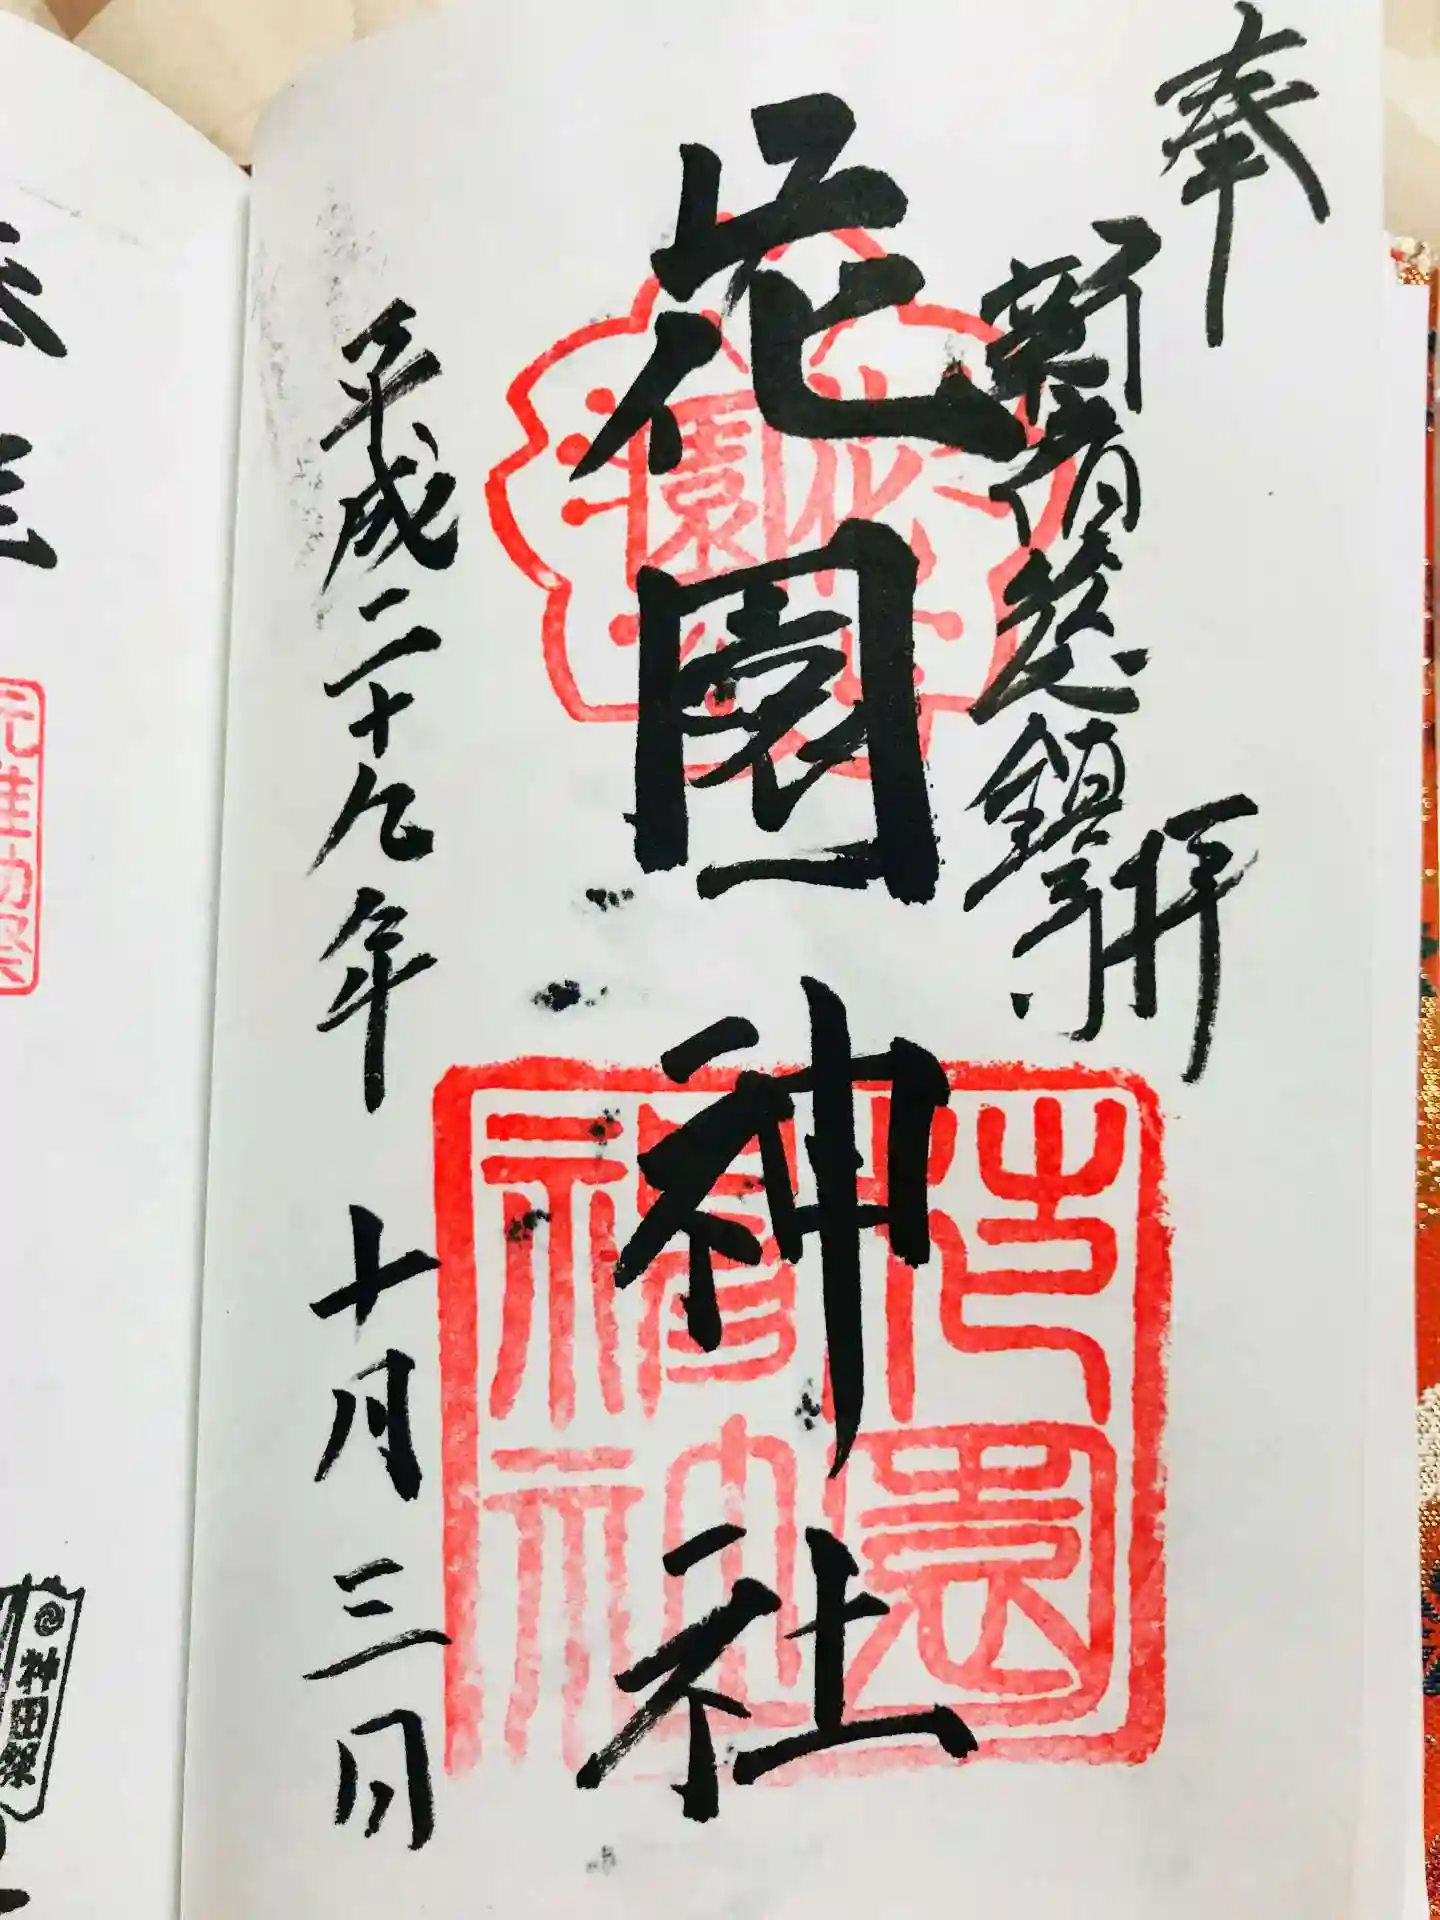 奉拝
新宿総鎮守
花園神社
平成二十九年十月三日
花園
神社
花園
稲荷
神社
神田祭